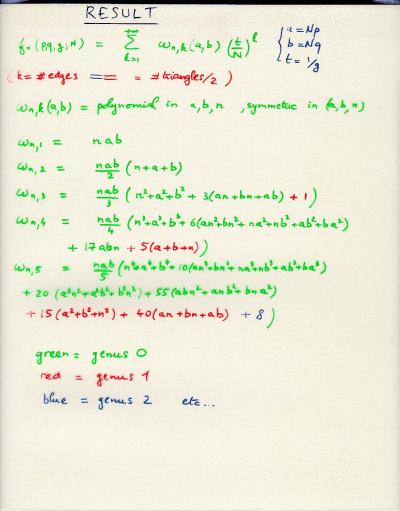 RESULT
fn(p,q,g;N) = +∞ ∑ k=1 ωn,k(a,b) (t/N)^k { a = Np
b = Nq
t = 1/g
(k = #edges == = #triangles/2)
ωn,k(a,b) = polynomial in a,b,n , symmetric in (a,b,n)
ωn,1 = nab
ωn,2 = nab/2 (n+a+b)
ωn,3 = nab/3 (n²+a²+b² + 3(an+bn+ab) + 1)
ωn,4 = nab/4 (n³+a³+b³ + 6(an²+bn²+na²+nb²+ab²+ba²)
+ 17abn + 5(a+b+n))
ωn,5 = nab/5 (n⁴+a⁴+b⁴+10(an³+bn³+na³+nb³+ab³+ba³)
+ 20 (a²n²+a²b²+b²n²) + 55(abn²+anb²+bna²)
+ 15(a²+b²+n²) + 40(an+bn+ab) + 8)
green = genus 0
red = genus 1
blue = genus 2 etc...